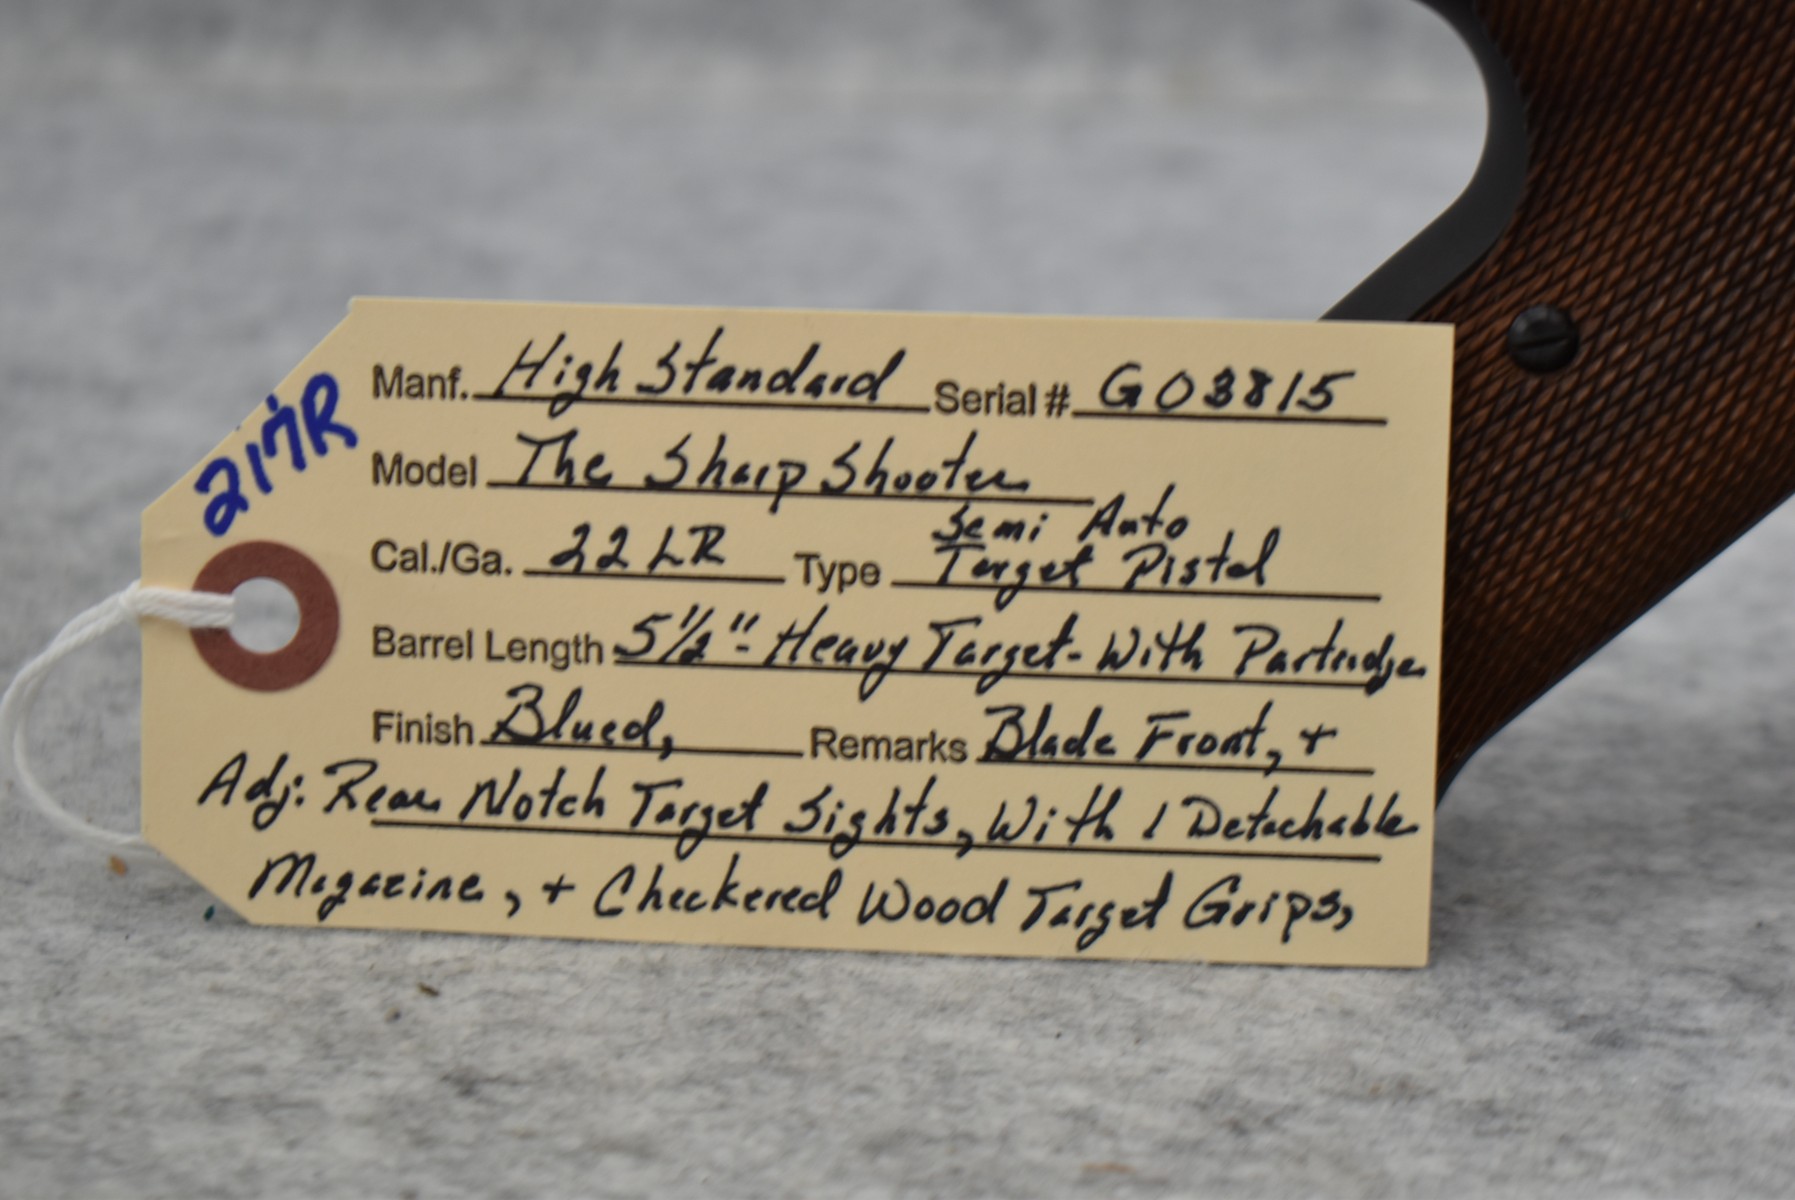 217R
Manf. High Standard Serial # G03815
Model The Sharp Shooter
Cal./Ga. 22 LR Type Semi Auto
Target Pistol
Barrel Length 5 1/2" - Heavy Target - With Partridge
Finish Blued, Remarks Blade Front, +
Adj. Rear Notch Target Sights, With 1 Detachable
Magazine, + Checkered Wood Target Grips,